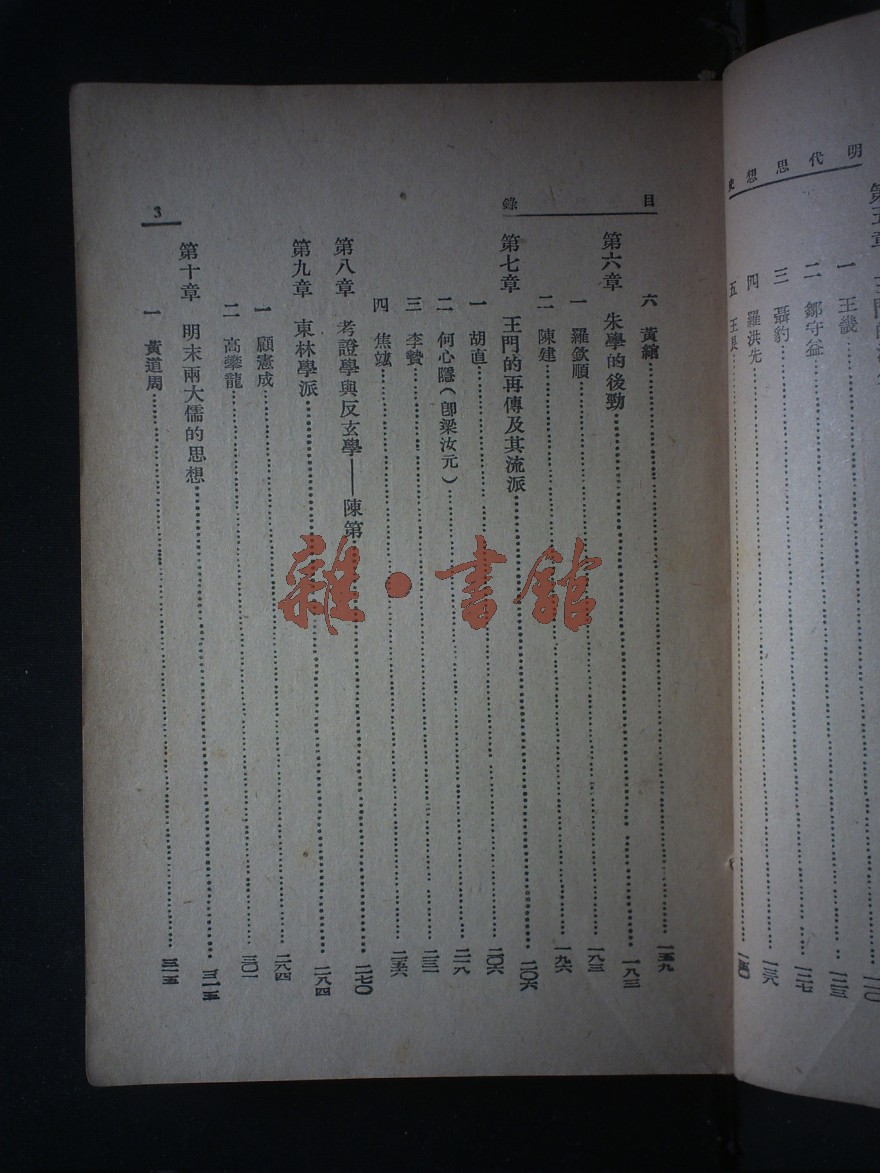 明代思想史
一 王畿……一二三
二 鄒守益……一二七
三 聶豹……一三八
四 羅洪先……一四〇
五 王艮
目錄
六 黃綰……一五九
第六章 朱學的後勁……一八三
一 羅欽順……一八三
二 陳建……一九六
第七章 王門的再傳及其流派……二〇六
一 胡直……二〇六
二 何心隱(卽梁汝元)……二一八
三 李贄……二三一
四 焦竑……二五六
第八章 考證學與反玄學——陳第……二七〇
第九章 東林學派……二八四
一 顧憲成……二八四
二 高攀龍……三〇一
第十章 明末兩大儒的思想……三一五
一 黃道周……三一五
3
雜·書館